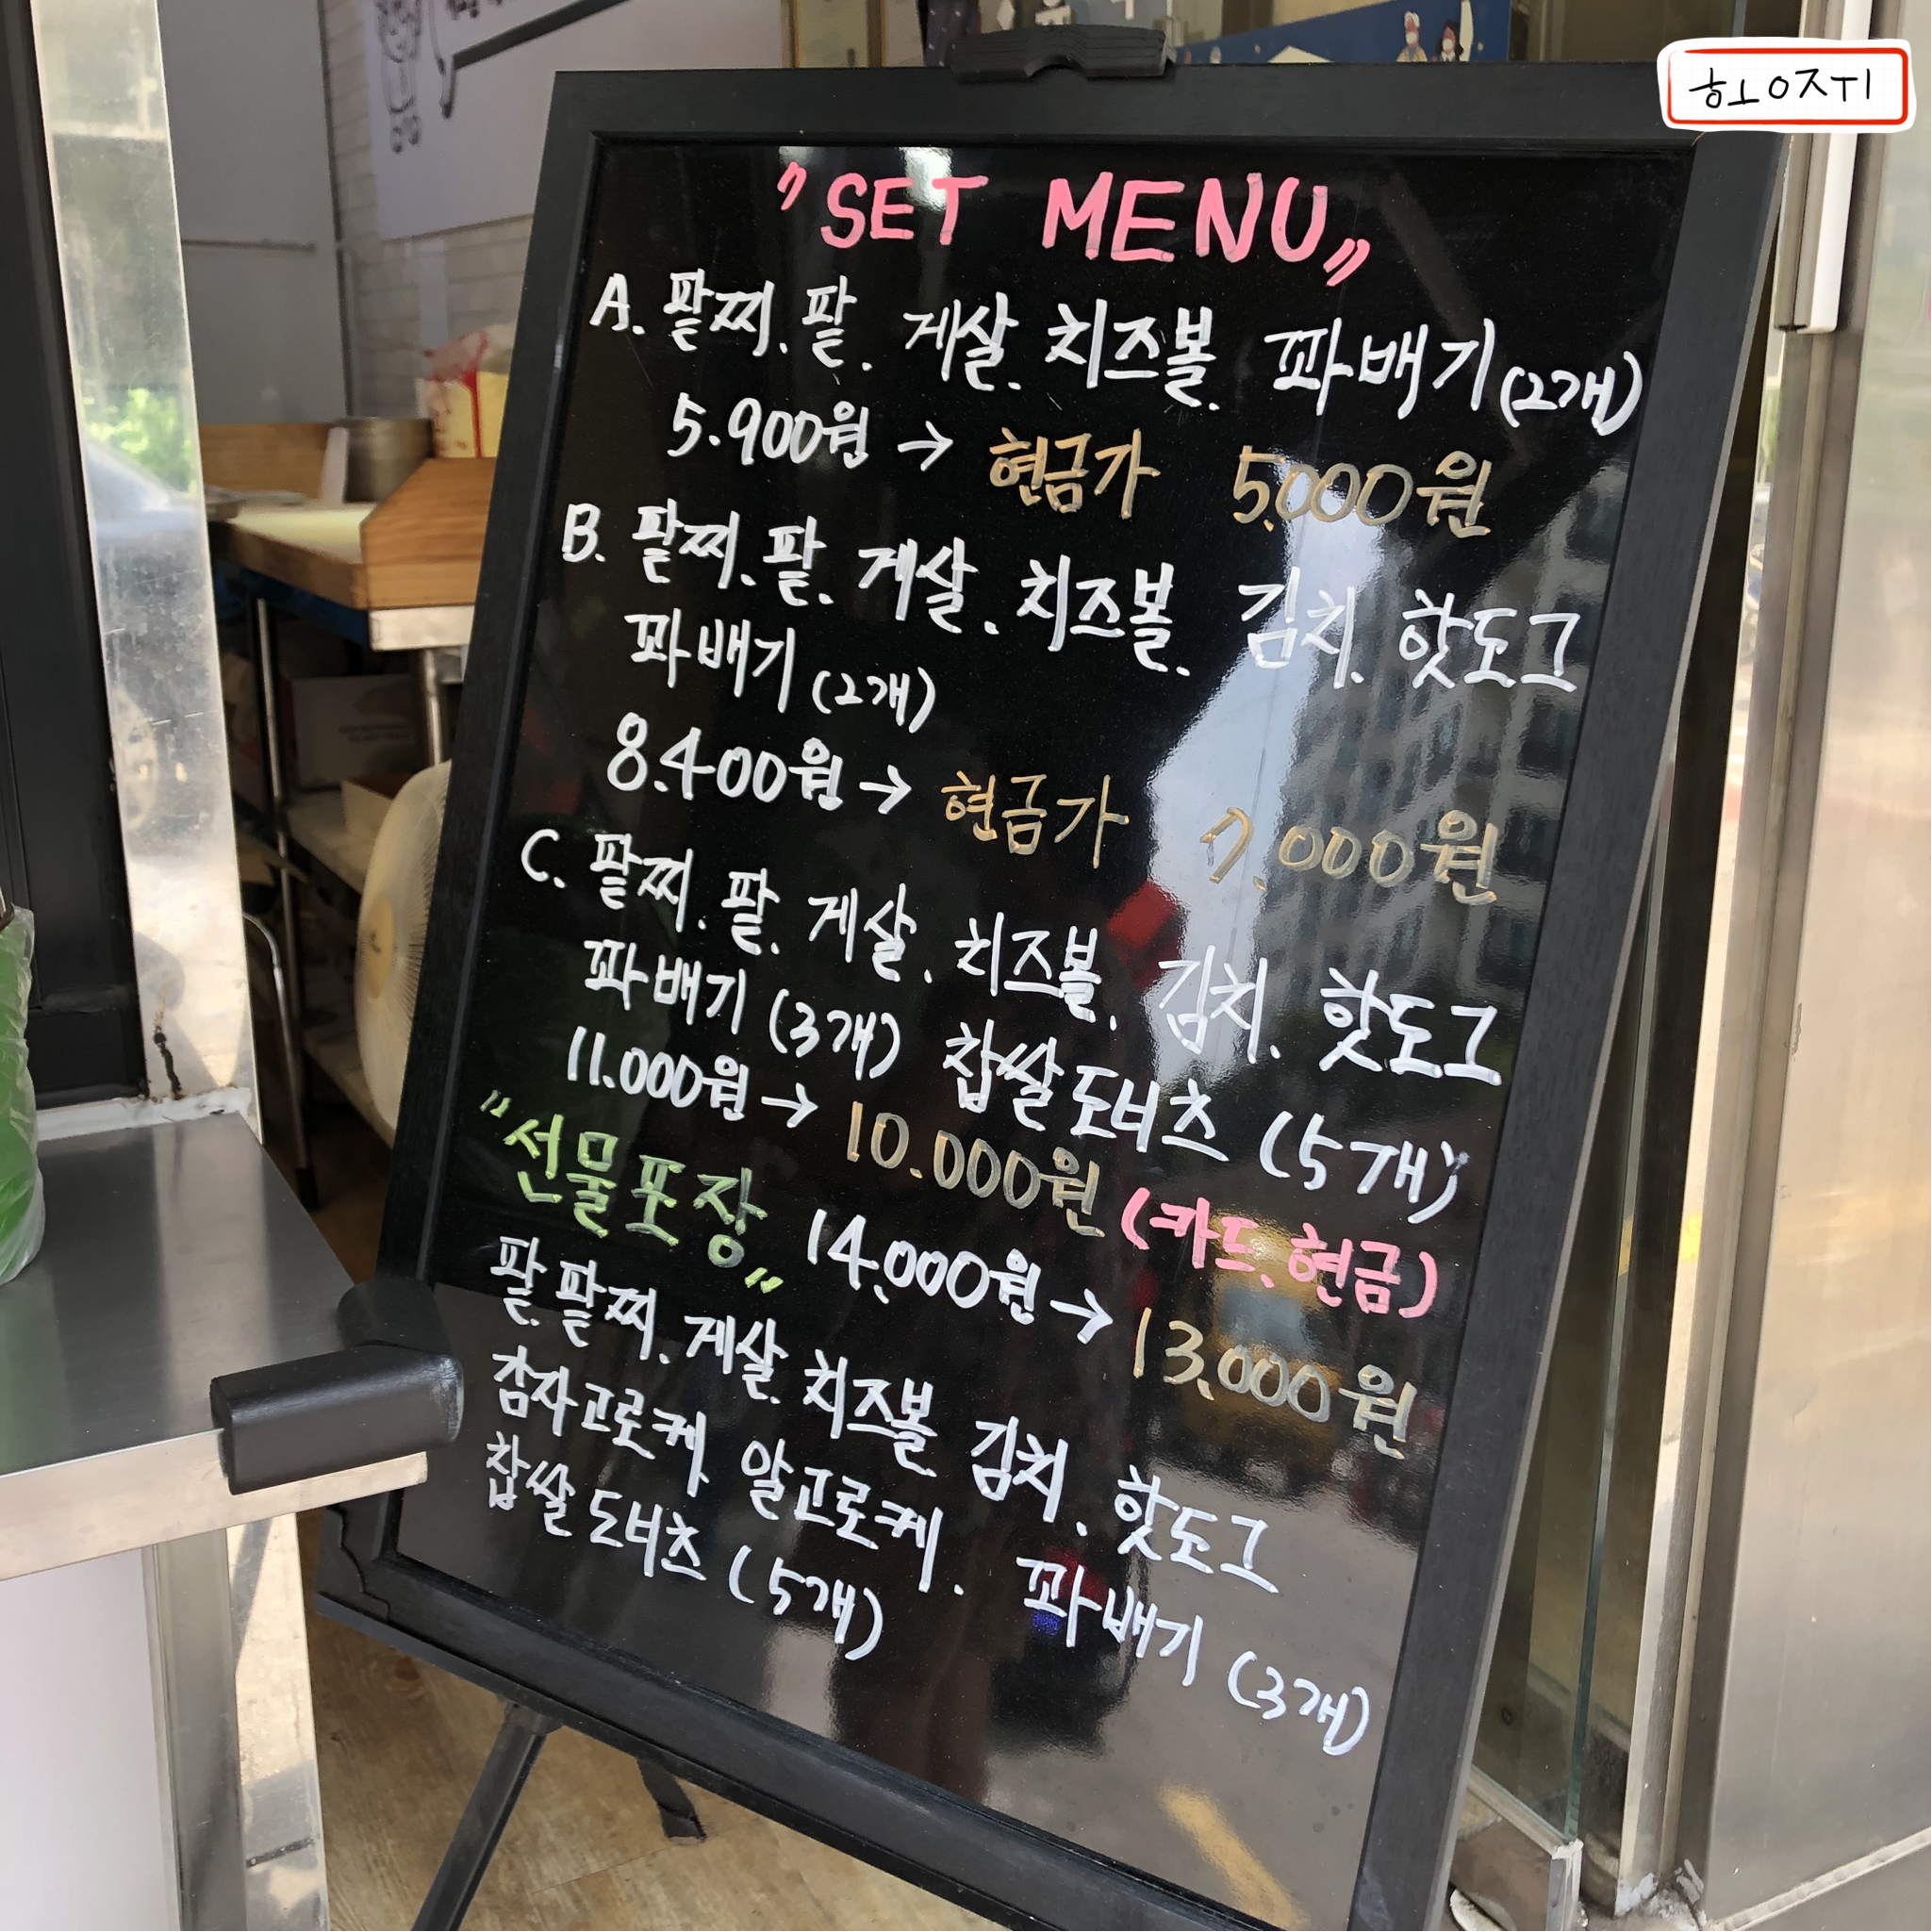 ㅎㅗㅇㅈㅜㅣ
"SET MENU"
A. 팥찌.팥. 게살. 치즈볼. 꽈배기(2개)
5.900원 → 현금가 5,000원
B. 팥찌.팥. 게살. 치즈볼. 김치. 핫도그
꽈배기(2개)
8.400원 → 현금가 7.000원
C. 팥찌.팥. 게살. 치즈볼. 김치. 핫도그
꽈배기(3개) 찹쌀도너츠(5개)
11.000원 → 10.000원 (카드.현금)
"선물포장" 14,000원 → 13,000원
팥.팥찌.게살.치즈볼. 김치. 핫도그
감자고로케. 알고로케. 꽈배기(3개)
찹쌀도너츠(5개)